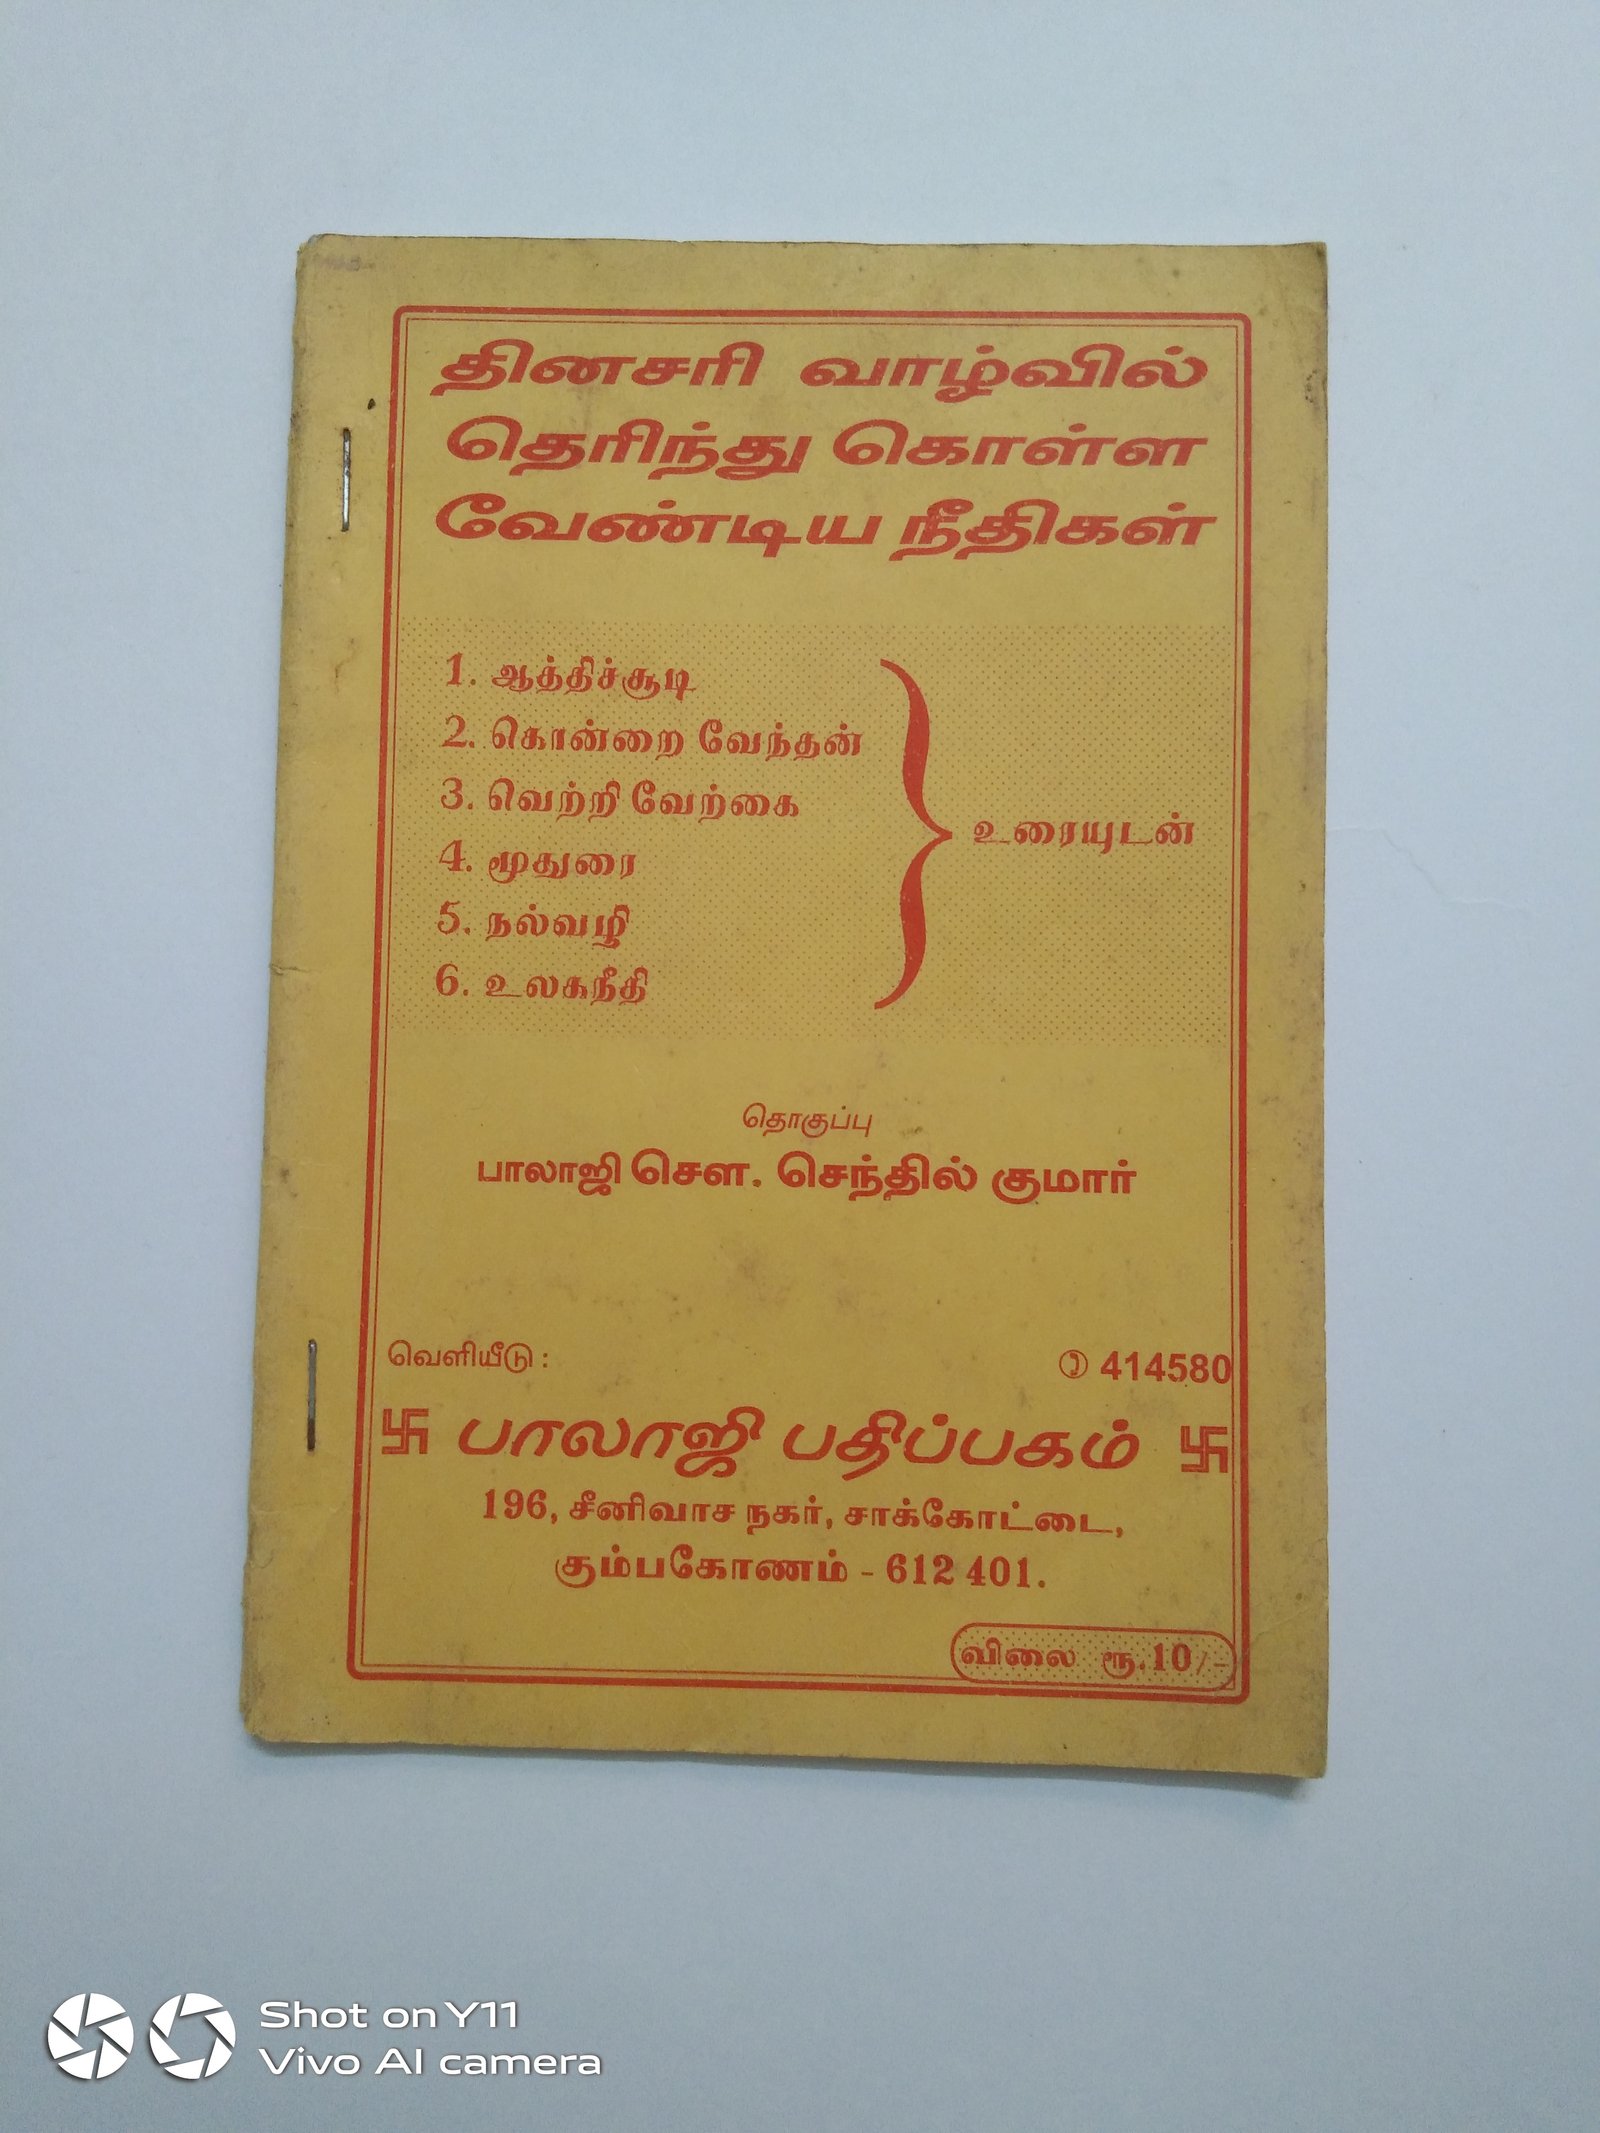 தினசரி வாழ்வில்
தெரிந்து கொள்ள
வேண்டிய நீதிகள்
1. ஆத்திச்சூடி
2. கொன்றை வேந்தன்
3. வெற்றி வேற்கை
4. மூதுரை
5. நல்வழி
6. உலகநீதி
உரையுடன்
தொகுப்பு
பாலாஜி சௌ. செந்தில் குமார்
வெளியீடு :
✆ 414580
卐 பாலாஜி பதிப்பகம் 卐
196, சீனிவாச நகர், சாக்கோட்டை,
கும்பகோணம் - 612 401.
விலை ரூ.10/-
Shot on Y11
Vivo AI camera